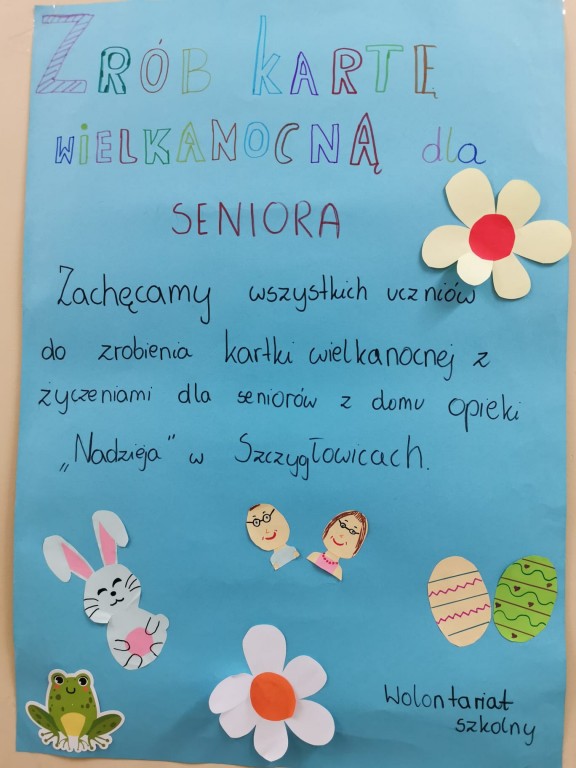 ZRÓB KARTĘ
WIELKANOCNĄ dla
SENIORA
Zachęcamy wszystkich uczniów
do zrobienia kartki wielkanocnej z
życzeniami dla seniorów z domu opieki
„Nadzieja" w Szczygłowicach.
Wolontariat
szkolny